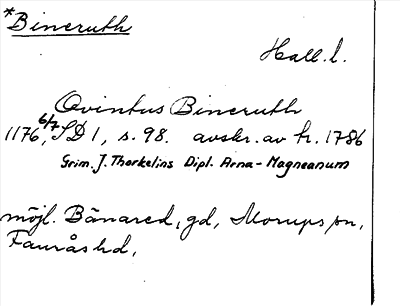 *Bineruth
Hall. l.
Qvintus Bineruth
1176, 6/7, SD 1, s. 98. avskr. av tr. 1786
Grim. J. Thorkelins Dipl. Arna-Magneanum
möjl. Bånared, gd, Morups sn,
Faurås hd,